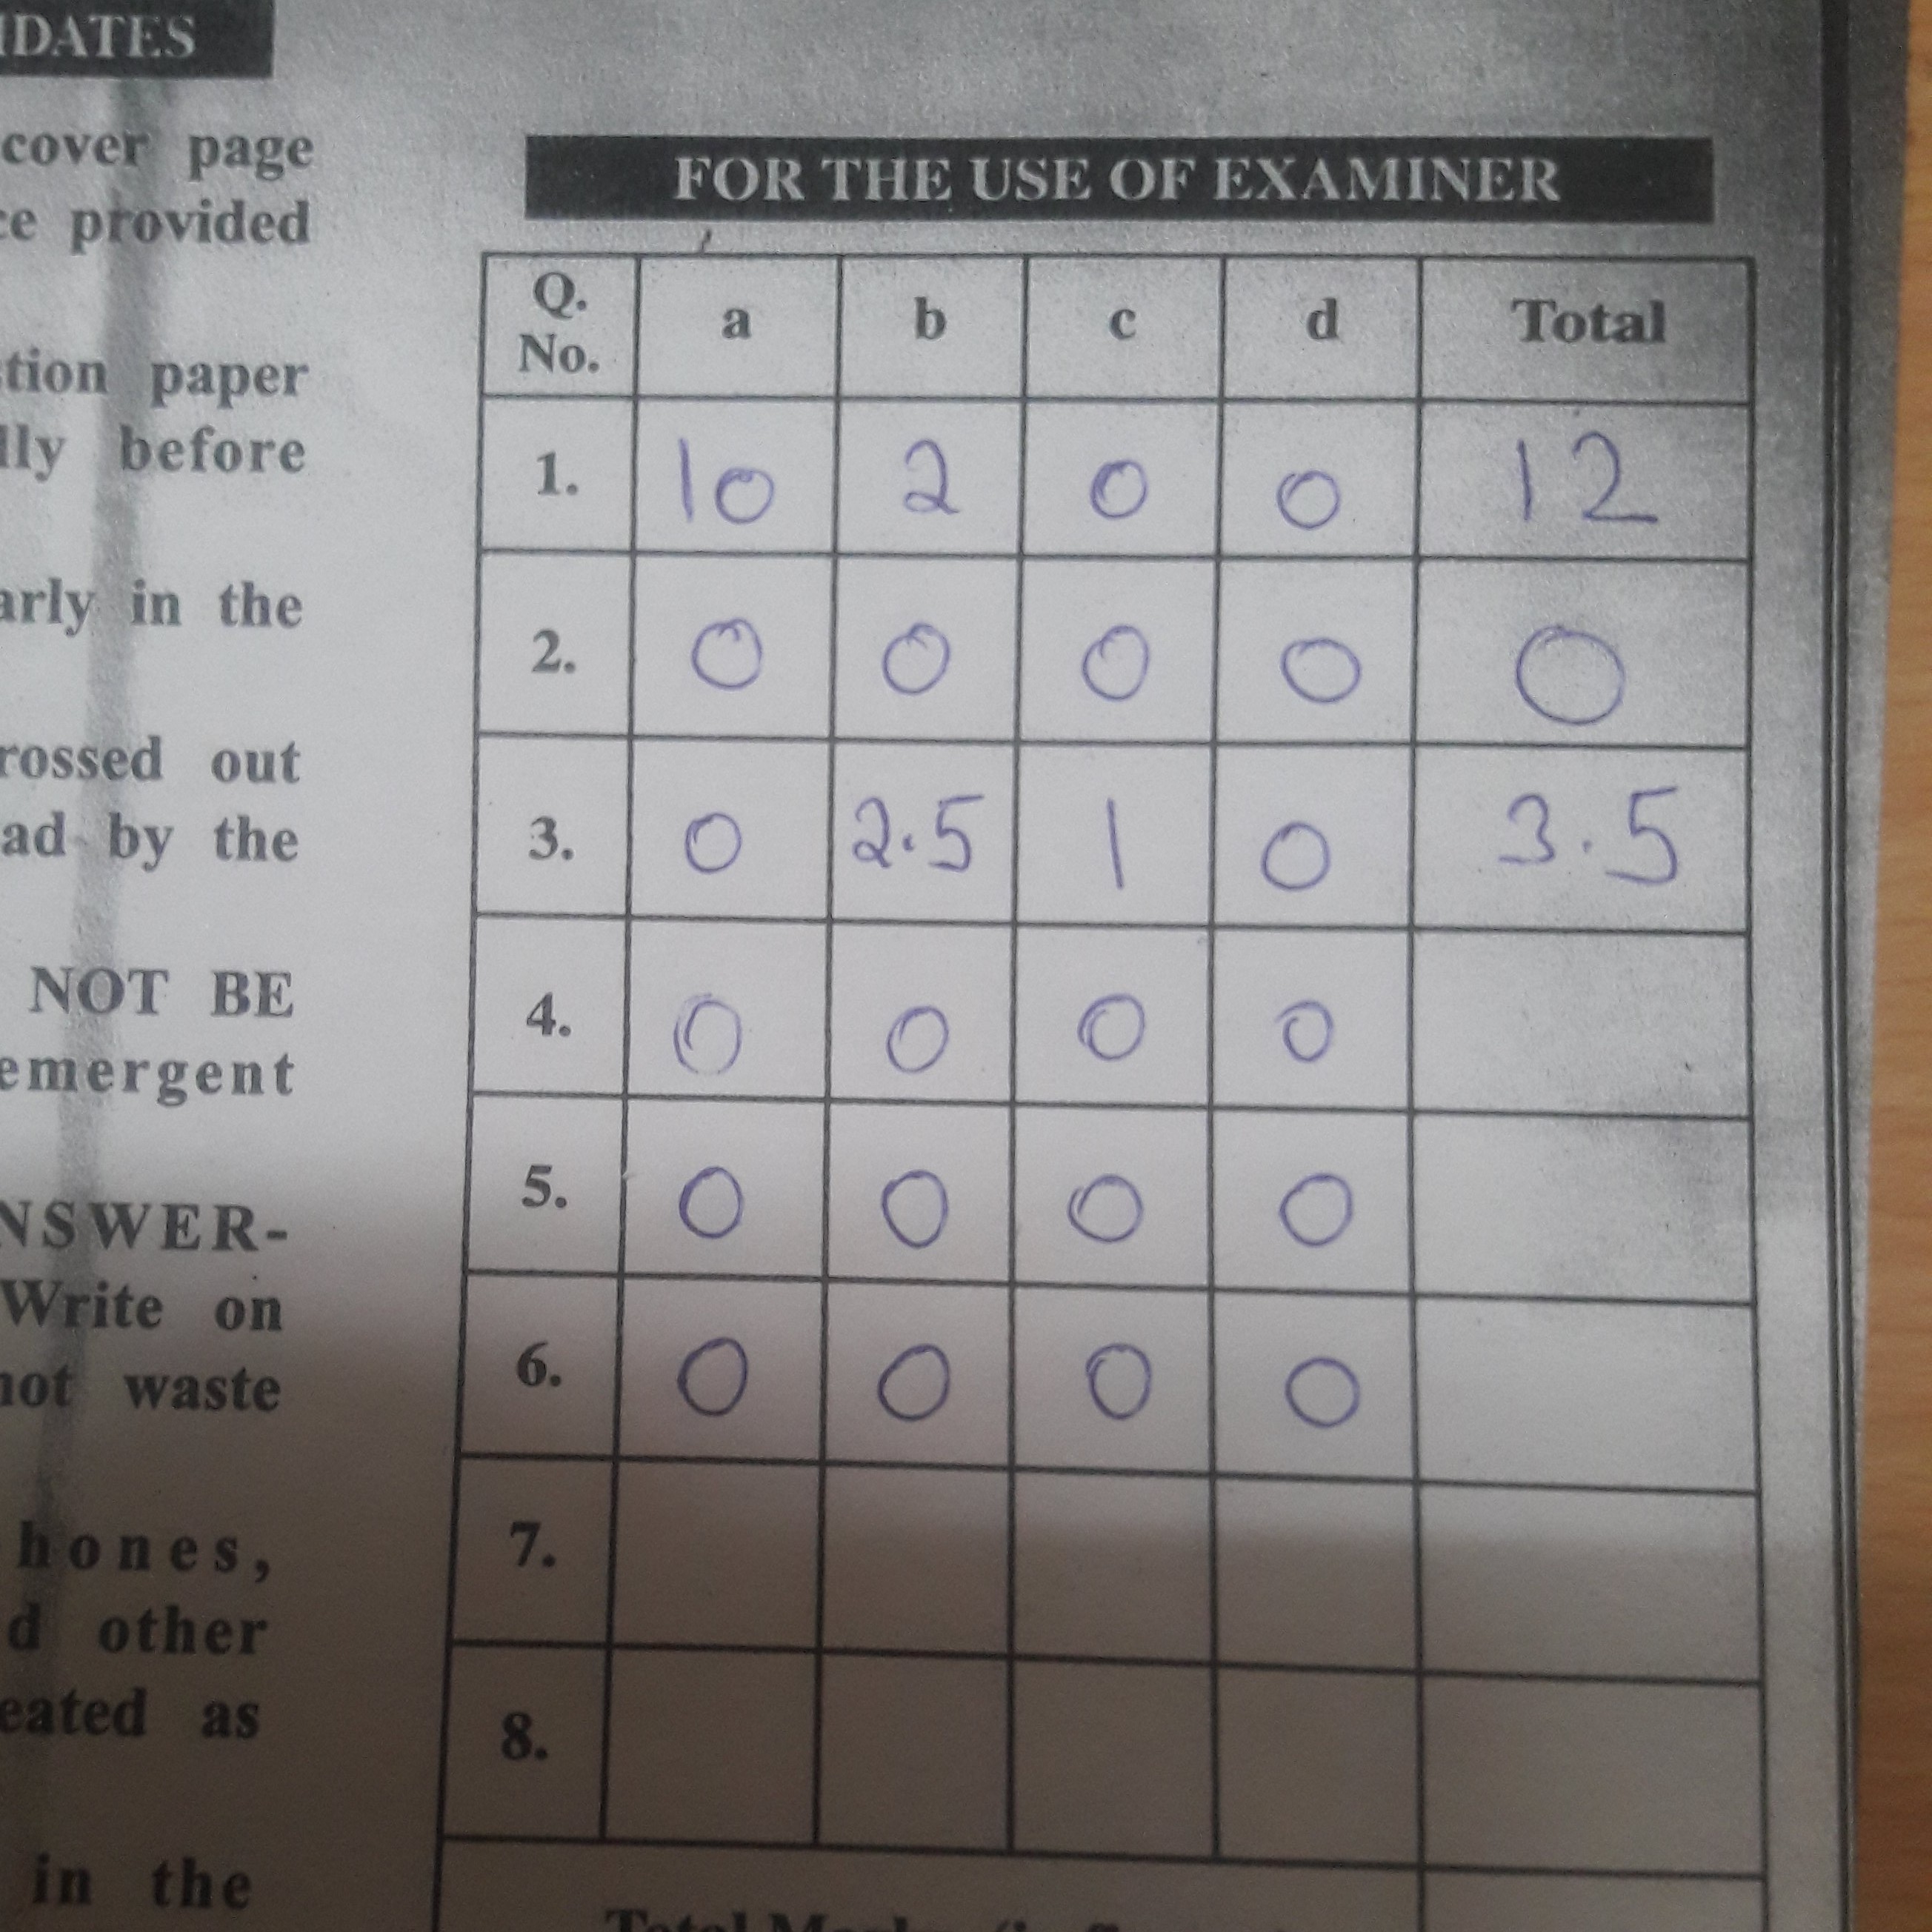 IDATES
cover page
ce provided
tion paper
lly before
arly in the
rossed out
ad by the
NOT BE
emergent
NSWER-
Write on
not waste
hones,
d other
eated as
in the
FOR THE USE OF EXAMINER
Q. No. a b c d Total
1. 10 2 0 0 12
2. 0 0 0 0 0
3. 0 2.5 1 0 3.5
4. 0 0 0 0
5. 0 0 0 0
6. 0 0 0 0
7.
8.
Total Marks